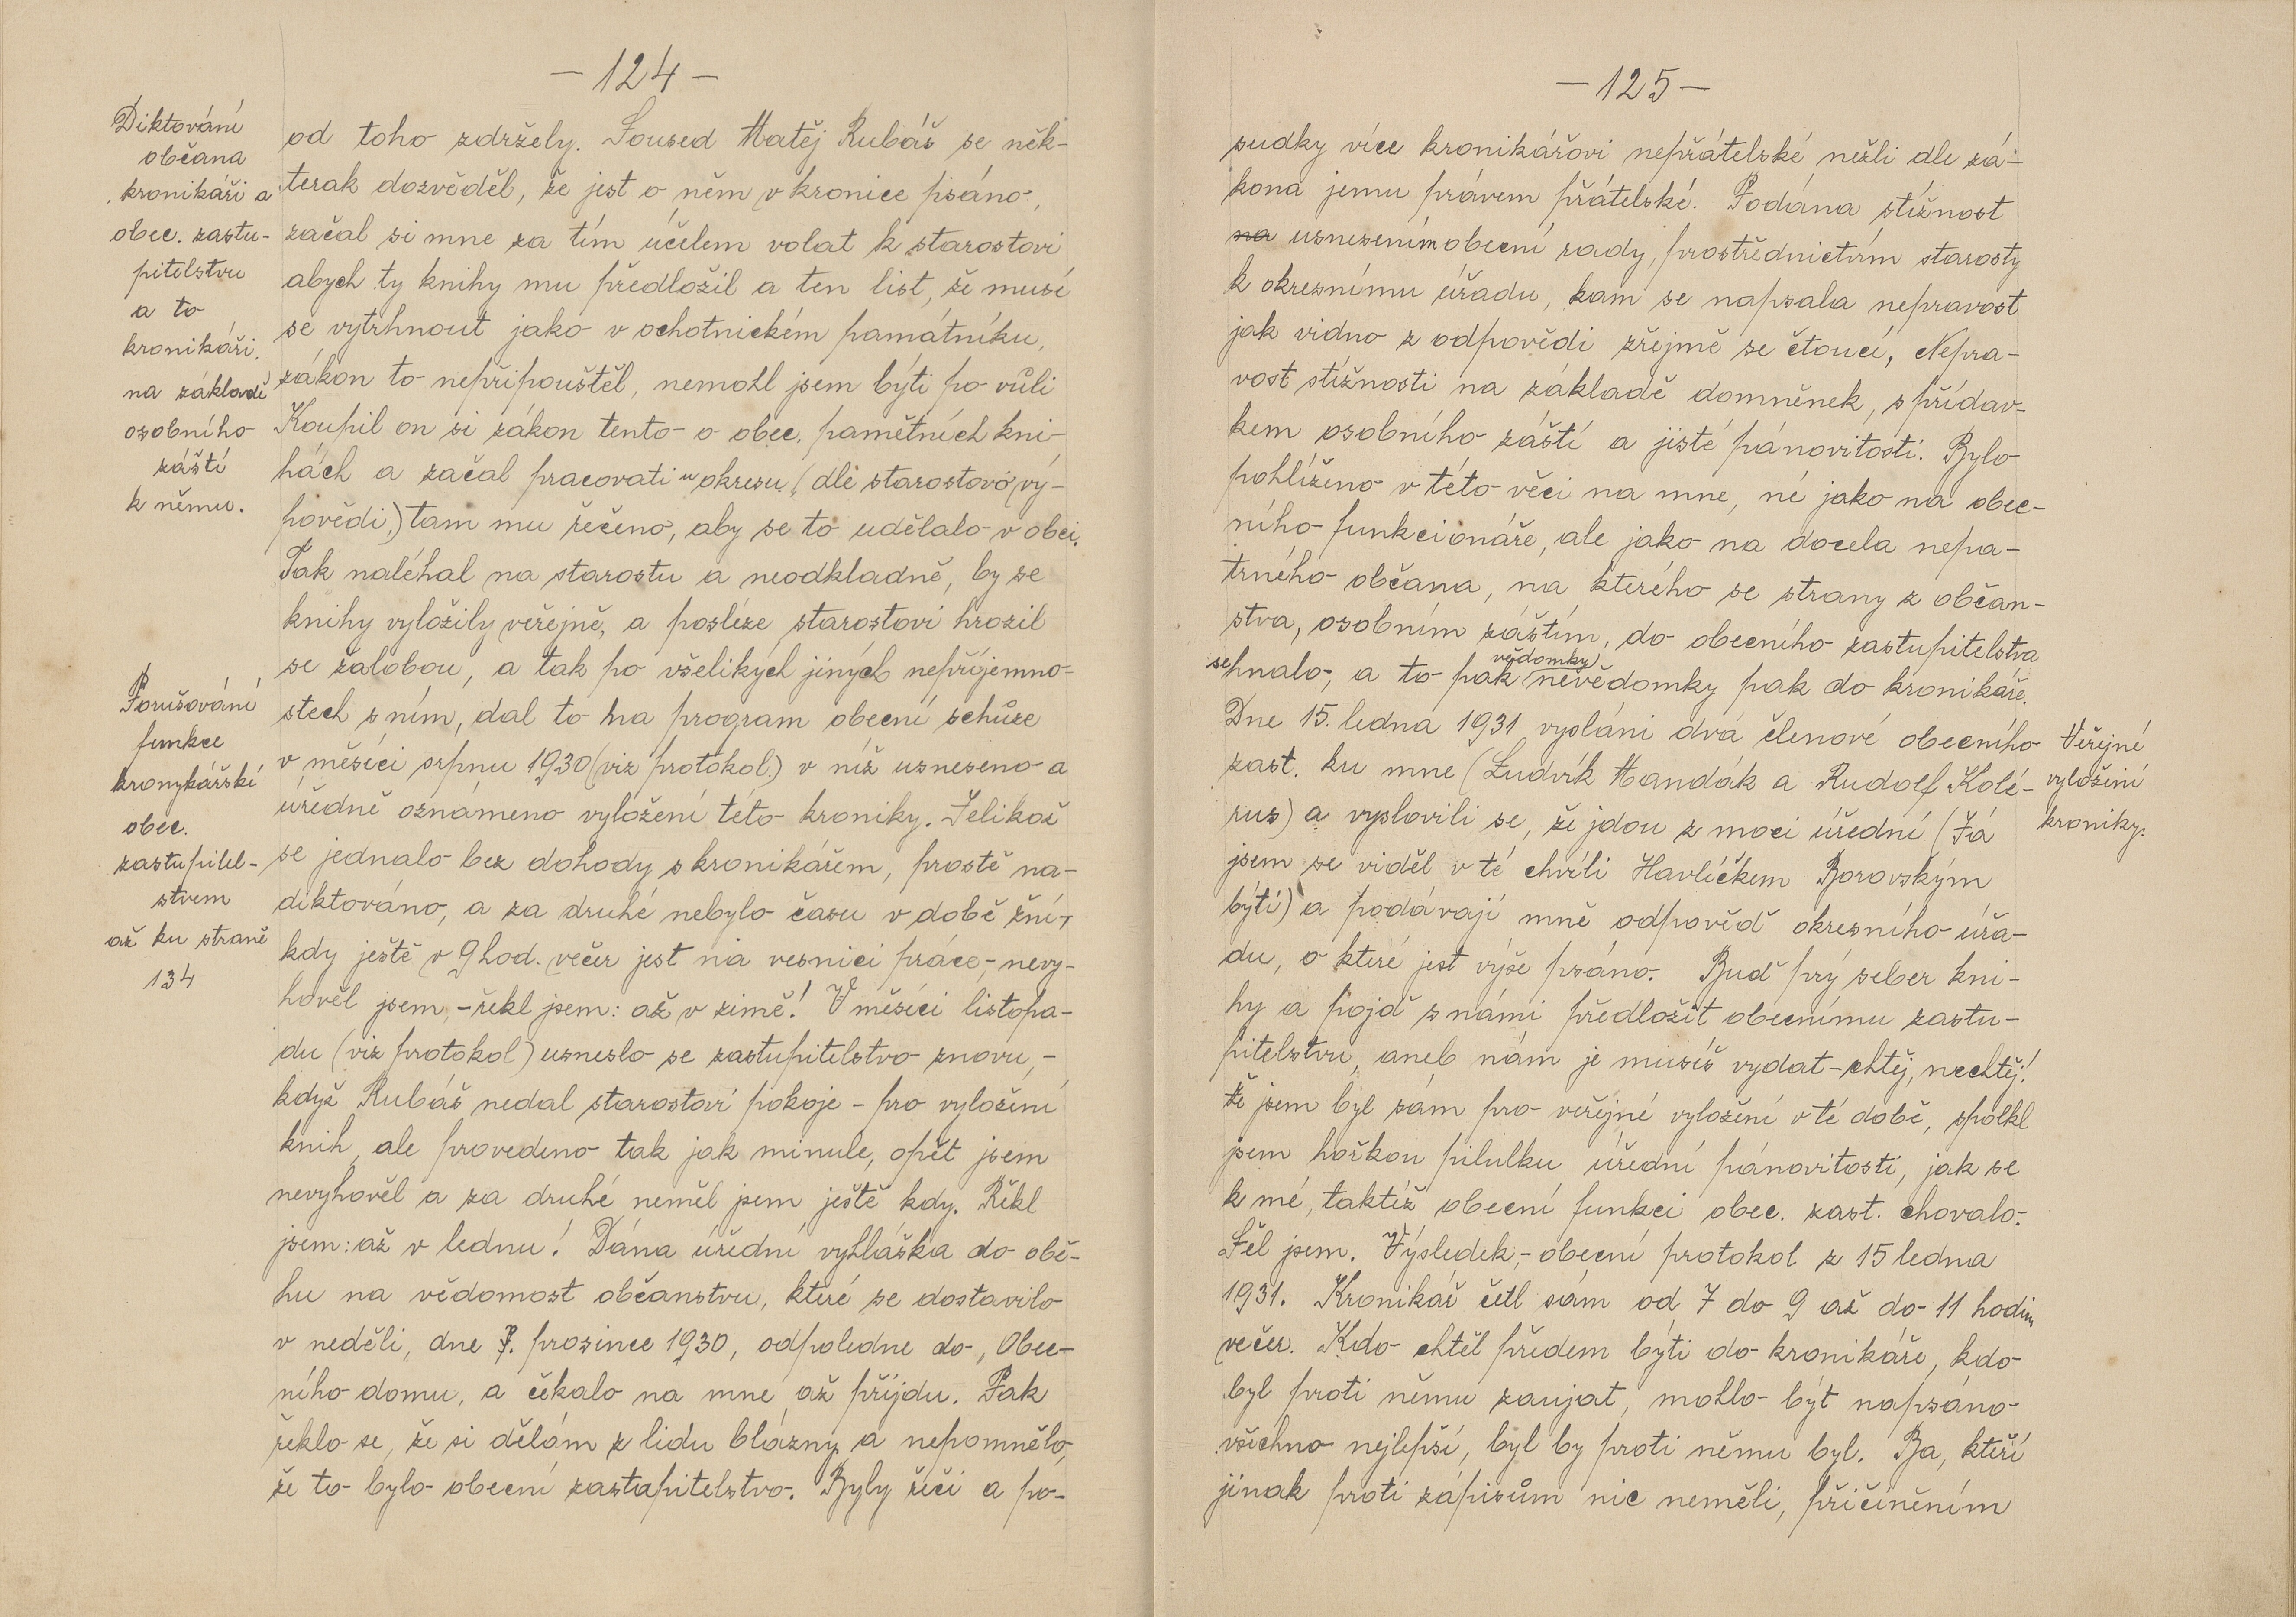 - 124 -
Diktování
občana
kronikáři a
obec. zastu-
pitelstvu
a to
kronikáři
na základě
osobního
záští
k němu.
od toho zdržely. Soused Matěj Rubáš se něk-
terak dozvěděl, že jest o něm v kronice psáno,
začal si mne za tím účelem volat k starostovi
abych ty knihy mu předložil a ten list, že musí
se vytrhnout jako v ochotnickém památníku,
zákon to nepřipouštěl, nemohl jsem býti po vůli
Koupil on si zákon tento o obec. pamětních kni-
hách a začal pracovati u okresu (dle starostovo vý-
povědi,) tam mu řečeno, aby se to udělalo v obci.
Tak naléhal na starostu a neodkladně, by se
knihy vyložily veřejně, a posléze starostovi hrozil
se žalobou, a tak po všelikých jiných nepříjemno-
stech s ním, dal to na program obecní schůze
v měsíci srpnu 1930 (viz protokol) v níž usneseno a
úředně oznámeno vyložení této kroniky. Jelikož
se jednalo bez dohody s kronikářem, prostě na-
diktováno, a za druhé nebylo času v době žní,
kdy ještě v 9 hod. večer jest na vesnici práce,- nevy-
hověl jsem,- řekl jsem: až v zimě! V měsíci listopa-
du (viz protokol) usneslo se zastupitelstvo znovu,-
když Rubáš nedal starostovi pokoje - pro vyložení
knih, ale provedeno tak jak minule, opět jsem
nevyhověl a za druhé neměl jsem ještě kdy. Řekl
jsem: až v lednu! Dána úřední vyhláška do obě-
hu na vědomost občanstvu, které se dostavilo
v neděli, dne 7. prosince 1930, odpoledne do, Obec-
ního domu, a čekalo na mne až příjdu. Pak
řeklo se, že si dělám z lidu blázny a nepomnělo,
že to bylo obecní zastupitelstvo. Byly řeči a po-
Porušování
funkce
kronykářské
obec.
zastupitel-
stvem
až ku straně
134
- 125 -
sudky více kronikářovi nepřátelské nežli dle zá-
kona jemu právem přátelské. Podána stížnost
na usnesením obecní rady, prostřednictvím starosty
k okresnímu úřadu, kam se napsala nepravost
jak vidno z odpovědi zřejmě se čtoucí, Nepra-
vost stížnosti na základě domněnek, s přídav-
kem osobního záští a jisté pánovitosti. Bylo
pohlíženo v této věci na mne, né jako na obec-
ního funkcionáře, ale jako na docela nepa-
trného občana, na kterého se strany z občan-
stva, osobním záštím, do obecního zastupitelstva
vědomky
sehnalo, a to pak nevědomky pak do kronikáře.
Dne 15. ledna 1931 vysláni dva členové obecního
zast. ku mne (Ludvík Handák a Rudolf Kolé-
rus) a vyslovili se, že jdou z moci úřední (Já
jsem se viděl v té chvíli Havlíčkem Borovským
býti) a podávají mně odpověď okresního úřa-
du, o které jest výše psáno. Buď prý seber kni-
hy a pojď s námi předložit obecnímu zastu-
pitelstvu, aneb nám je musíš vydat - chtěj, nechtěj!
Že jsem byl sám pro veřejné vyložení v té době, spolkl
jsem hořkou pilulku úřední pánovitosti, jak se
k mé, taktéž obecní funkci obec. zast. chovalo.
Šel jsem. Výsledek,- obecní protokol z 15 ledna
1931. Kronikář četl sám od 7 do 9 až do 11 hodin
večer. Kdo chtěl předem býti do kronikáře, kdo
byl proti němu zaujat, mohlo být napsáno
všechno nejlepší, byl by proti němu byl. Ba, kteří
jinak proti zápisům nic neměli, přičiněním
Veřejné
vyložení
kroniky.